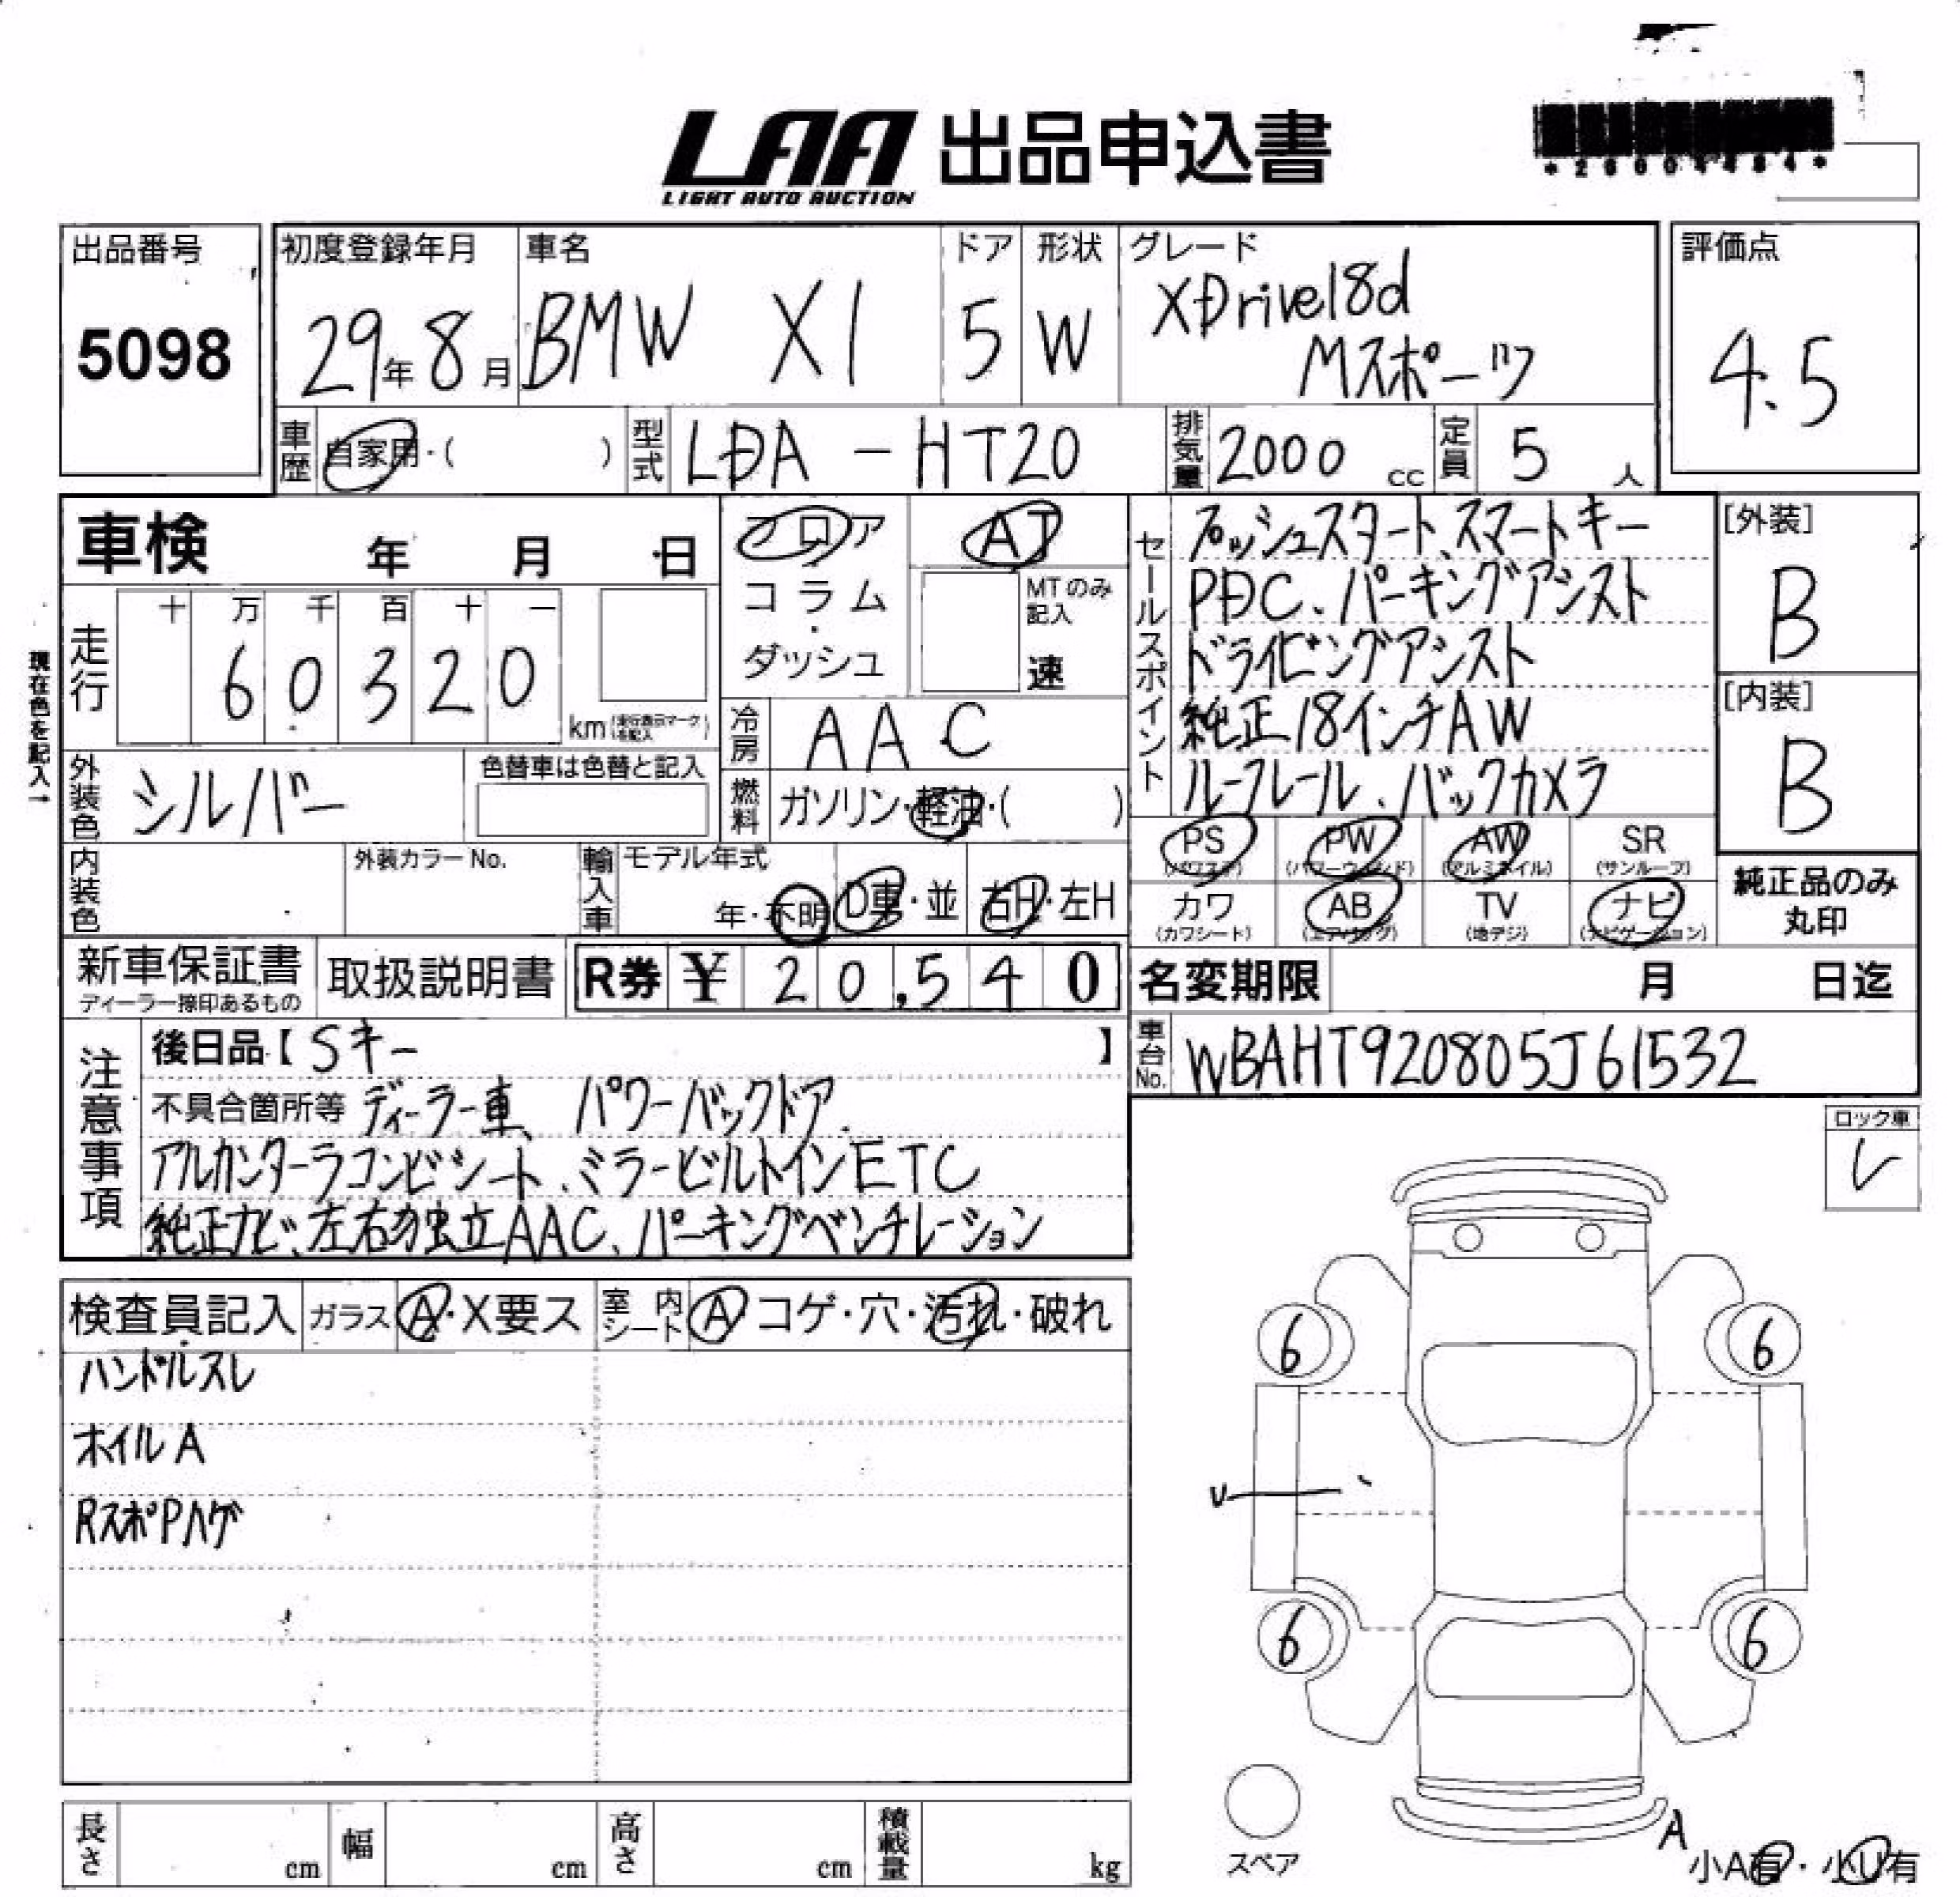 LAA 出品申込書
LIGHT AUTO AUCTION
出品番号
5098
初度登録年月
29年8月
車名
BMW X1
ドア
5
形状
W
グレード
XDrive18d
Mスポーツ
評価点
4.5
車歴
自家用・( )
型式
LDA-HT20
排気量
2000 cc
定員
5 人
車検 年 月 日
フロア
コラム
ダッシュ
AT
MTのみ
記入
速
現在色を記入→
走行
十 万 千 百 十 一
6 0 3 2 0
km
冷房
AAC
外装色
シルバー
色替車は色替と記入
燃料
ガソリン・軽油・( )
内装色
外装カラーNo.
輸入車
モデル年式
年・不明
D車・並
右H・左H
セールスポイント
プッシュスタート、スマートキー
PDC、パーキングアシスト
ドライビングアシスト
純正18インチAW
ルーフレール、バックカメラ
[外装]
B
[内装]
B
PS
(パワステ)
PW
(パワーウィンド)
AW
(アルミホイル)
SR
(サンルーフ)
カワ
(カワシート)
AB
(エアバッグ)
TV
(地デジ)
ナビ
(ナビゲーション)
純正品のみ
丸印
新車保証書
ディーラー捺印あるもの
取扱説明書
R券 ¥ 20,540
名変期限 月 日迄
車台No.
WBAHT920805J61532
注意事項
後日品【Sキー 】
不具合箇所等 ディーラー車、パワーバックドア、
アルカンターラコンビシート、ミラービルトインETC
純正ナビ、左右独立AAC、パーキングベンチレーション
ロック車
レ
検査員記入
ガラス A・X要ス
室内シート A コゲ・穴・汚れ・破れ
ハンドルスレ
ホイルA
RスポPハゲ
6
6
U
6
6
スペア
A
小A有・小U有
長さ cm
幅 cm
高さ cm
積載量 kg